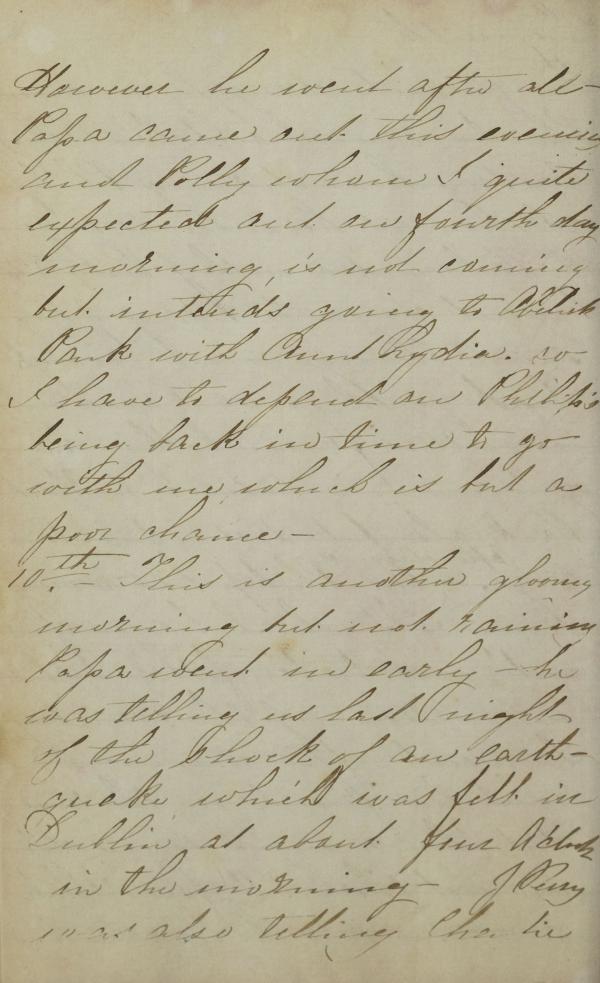 However he went after all –
Papa came out this evening
and Polly whom I quite
expected out on fourth day
morning, is not coming
but intends going to
Park with Aunt Lydia. so
I have to depend on Philip's
being back in time to go
with me which is but a
poor chance –
10th. – This is another gloomy
morning but not raining
Papa went in early – he
was telling us last night
of the shock of an earth-
quake which was felt in
Dublin at about four O'clock
in the morning – J Perry
was also telling Charlie